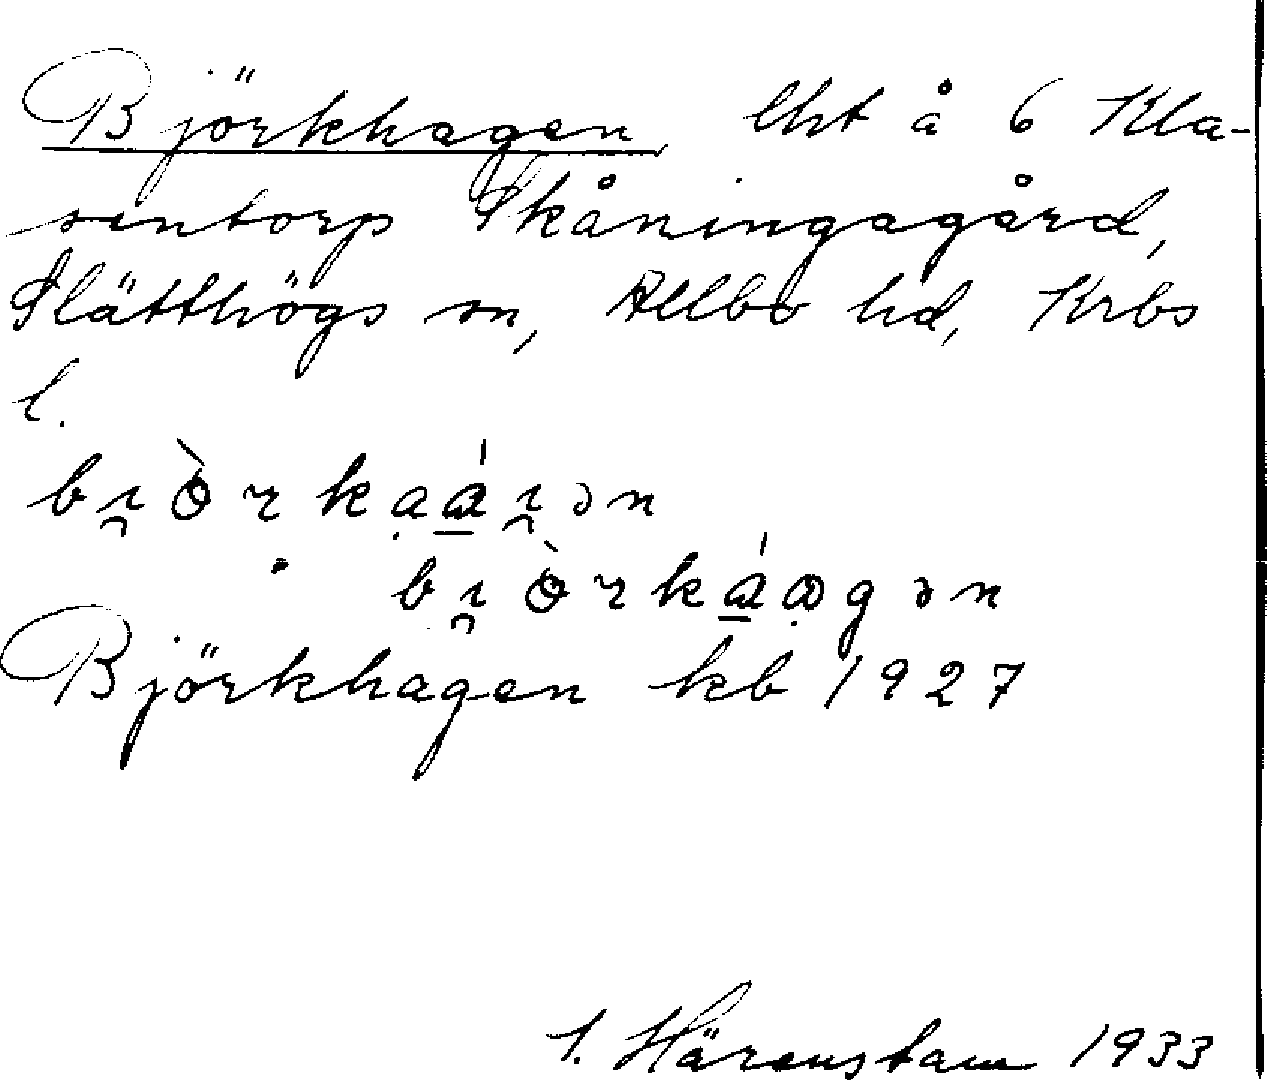 Björkhagen, lht å 6 Kla-
sentorp Skåningagård,
Slätthögs sn, Allbo hd, Krbs
l.
bı̯òrkạáı̯ən
bı̯òrkáạgən
Björkhagen kb 1927
S. Härenstam 1933